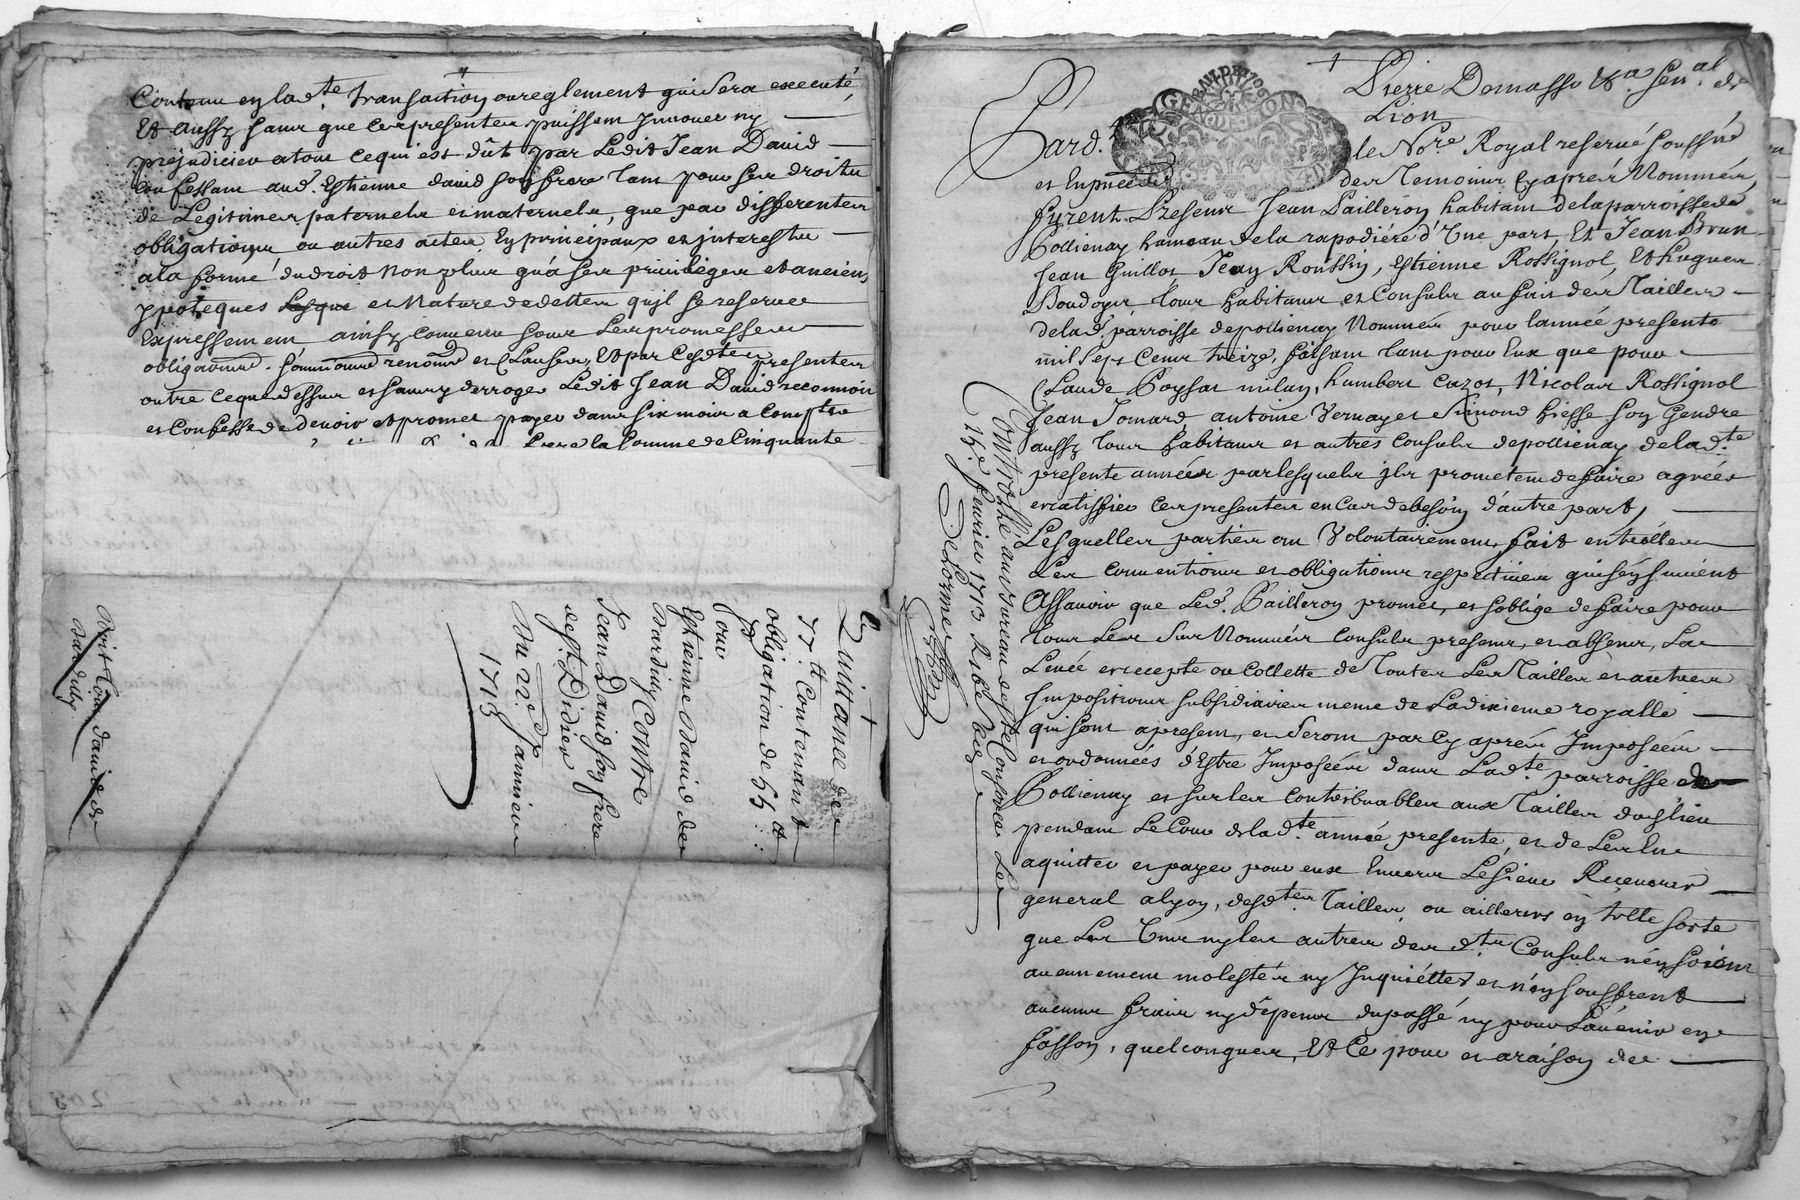 Contenu en lad.te transaction ou reglement qui sera executé,
Et aussy sans que ces presentes puissent Innover ny
prejudicier a tout ce qui est dût par Ledit Jean David
confessant aud. Estienne david son frere tant pour ses droits
de Legitimes paternels et maternels, que par differentes
obligations, ou autres actes En principaux et interestz
a la forme du droit Non plus qu'a ses privileges et anciens
ypoteques et Nature de dettes qu'il se reserve
Expressement ainsy convenu sous Les promesses
obligaons. soumissions renons et Clauses, Et par Cesdtes presentes
outre ce que dessus et sans y derroger Ledit Jean David reconnoit
et Confesse de devoir et promet payer dans six mois a Compter
frere la somme de Cinquante
Quittance de
77.tt Contenant
obligation de 55 tt
Pour
Estienne David de
Nardin CONTRE
Jean David son frere
de St. Didier
Du 22e Janvier
1713
Pierre Domasso
Lion
Pard.t
GE BAIL DE 1706
LION
le No.re Royal reservé soussné
et En pnce des Temoins Cy aprés Nommés,
furent Presens Jean Pailleron habitant de la parroisse de
Pollienay hameau de la rapodiére d'Une part, Et Jean Brun
Jean Guillot Jean Roussin, Estienne Rossignol, Et hugues
Boudoyer tous habitans et Consuls au fait des Tailles
de lad. parroisse de pollienay Nommés pour lannée presente
mil sept Cens treize, faisant tant pour Eux que pour
Claude Poyssat milan, humbert cazot, Nicolas Rossignol
Jean Jomard, antoine Vernay et Simond hiesse son Gendre
aussy tous habitans et autres Consuls de pollienay de lad.te
presente année par lesquels ils prometent de faire agréer
et ratiffier ces presentes en cas de besoin d'autre part,
Lesquelles parties ont Volontairement fait entre elles
Les conventions et obligations respectives qui s'en suivent
Assavoir que Led. Pailleron promet, et s'oblige de faire pour
tous Les Sus Nommés Consuls presens, et absens, La
Levée et recepte ou Collette de Toutes Les Tailles et autres
Impositions subsidiaires meme de La dixieme royalle
qui sont a present, et seront par Cy aprés Imposées
et ordonnées d'Estre Imposées dans Lad.te parroisse de
Pollienay et sur les Contribuables aux Tailles du lieu
pendant Le Cour de lad.te année presente, et de Les En
aquitter et payer pour eux Envers Le Sieur Receveur
general a lyon, desd.tes Tailles, ou ailleurs en telle sorte
que Les Uns ny les autres des d.ts Consuls n'en soient
aucunement molestés ny Inquiéttés et n'en souffrent
aucuns fraix ny dépens du passé ny pour L'avenir en
fasson, quelconques, Et Ce pour et a raison de
Controllé au bureau de Ste Consorce Le
15e fevrier 1713
Delorme